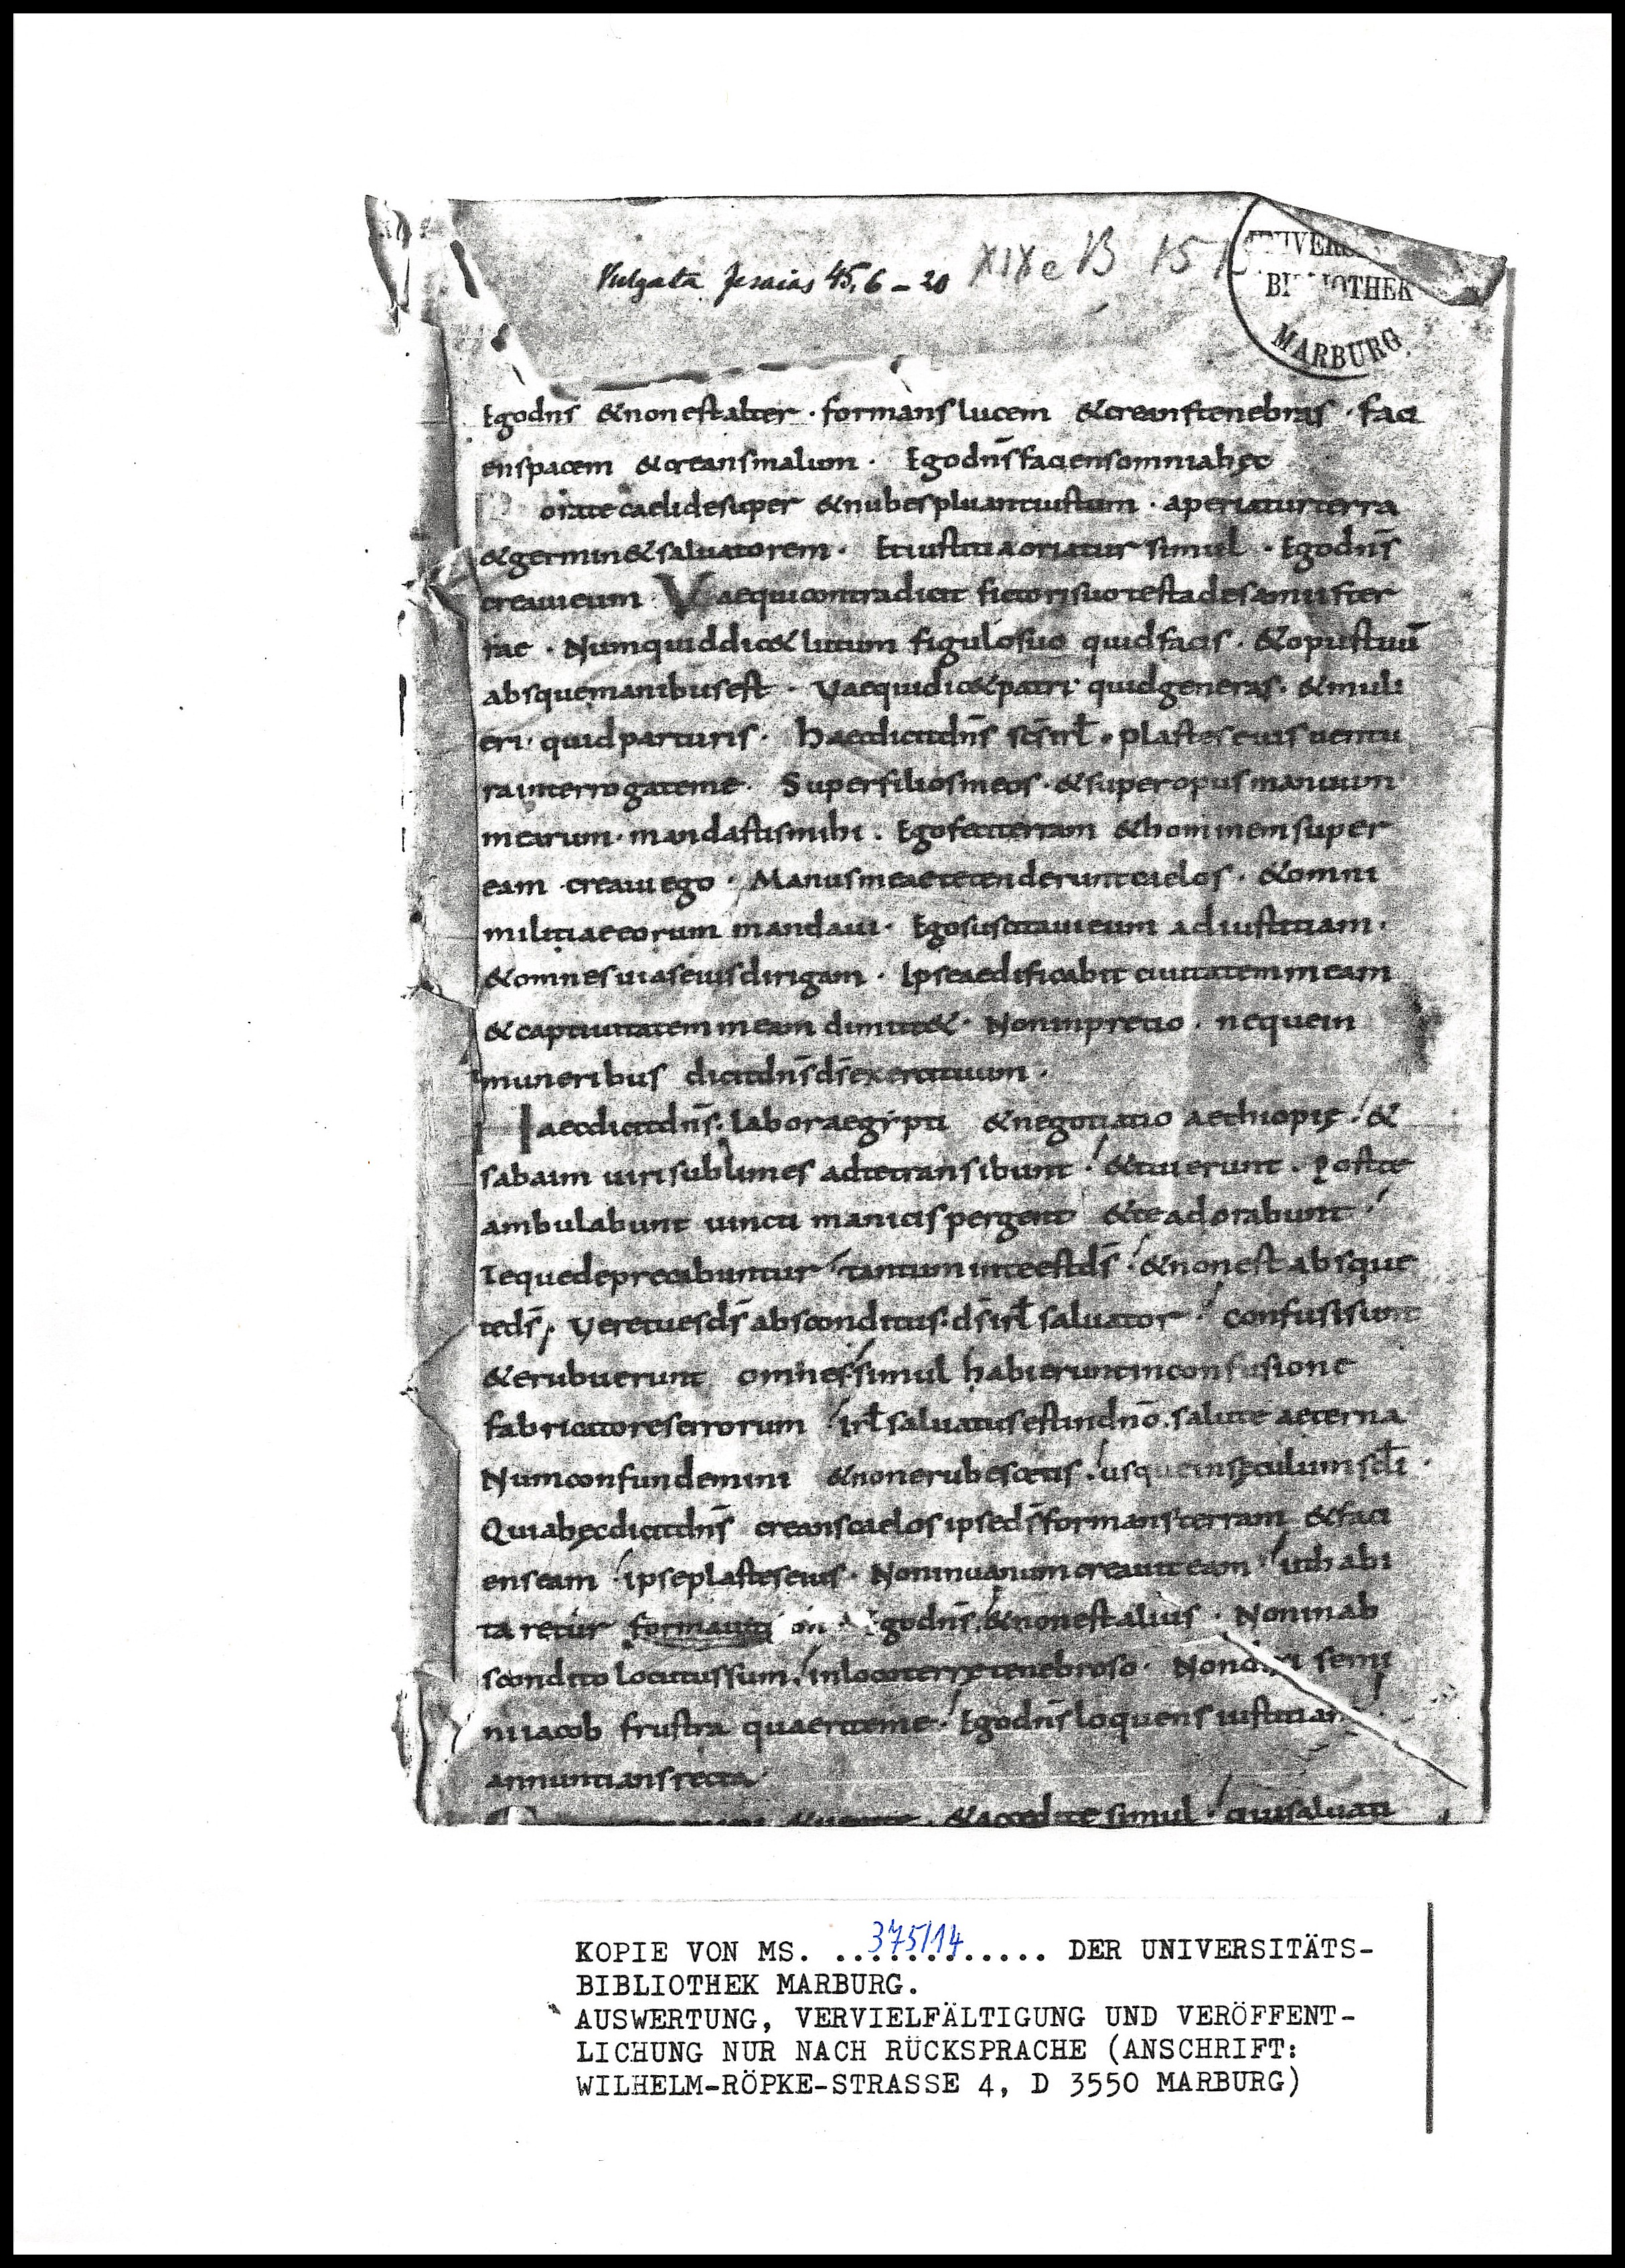 Vulgata Jesaias 45,6-20
XIX e B 15
UNIVERS
BIBLIOTHEK
MARBURG
Egodn̄s &nonestalter · formans lucem &creanstenebras · faci
enspacem &creansmalum · Egodn̄sfaciensomniahęc
oratecaelidesuper &nubespluantiustum · aperiaturterra
&germin&saluatorem · Etiustitiaoriatur simul · Egodn̄s
creauieum · Vaequicontradicit fictorisuotestadesamiister
rae · Numquiddic&lutum figulosuo quidfacis · &opustuū
absquemanibusest · Vaequidic&patri quidgeneras · &muli
eri · quidparturis · haecdicitdn̄s sc̄sisrl̄ · plasteseius uentu
rainterrogateme · Superfiliosmeos · &superopusmanuum
mearum · mandastismihi · Egofeciterram &hominemsuper
eam creauiego · Manusmeaetetenderuntcaelos · &omni
militiaeeorum mandaui · Egosuscitauieum adiustitiam ·
&omnesuiaseiusdirigam · Ipseaedificabit ciuitatemmeam
&captiuitatemmeam dimitt& · Noninpretio · nequein
muneribus dicitdn̄sds̄exercituum ·
Haecdicitdn̄s · laboraegypti &negotiatio aethiopię · &
sabaim uirisublimes adtetransibunt · &tuierunt · Postte
ambulabunt uincti manicispergent &teadorabunt ·
Tequedeprecabuntur tantum inteestds̄ · &nonestabsque
teds̄ · Veretuesds̄ absconditus · ds̄isrl̄ saluator · confusisunt
&erubuerunt omnes · simul habieruntinconfusione
fabricatoreserrorum isrl̄saluatusestindn̄o · salute aeterna
Numconfundemini &nonerubescetis · usqueinsęculumscl̄i ·
Quiahęcdicitdn̄s creanscaelos ipseds̄formansterram &faci
enseam · ipseplasteseius · Noninuanumcreauiteam · uthabi
taretur formauit godn̄s · &nonestalius · Noninab
scondito locutussum · inlocoterrętenebroso · Non semi
niiacob frustra quaeriteme · Egodn̄sloquens iustitiam
annuntiansrecta ·
&uenite · &accedite simul · quisaluati
KOPIE VON MS. ...375/14..... DER UNIVERSITÄTS-
BIBLIOTHEK MARBURG.
AUSWERTUNG, VERVIELFÄLTIGUNG UND VERÖFFENT-
LICHUNG NUR NACH RÜCKSPRACHE (ANSCHRIFT:
WILHELM-RÖPKE-STRASSE 4, D 3550 MARBURG)